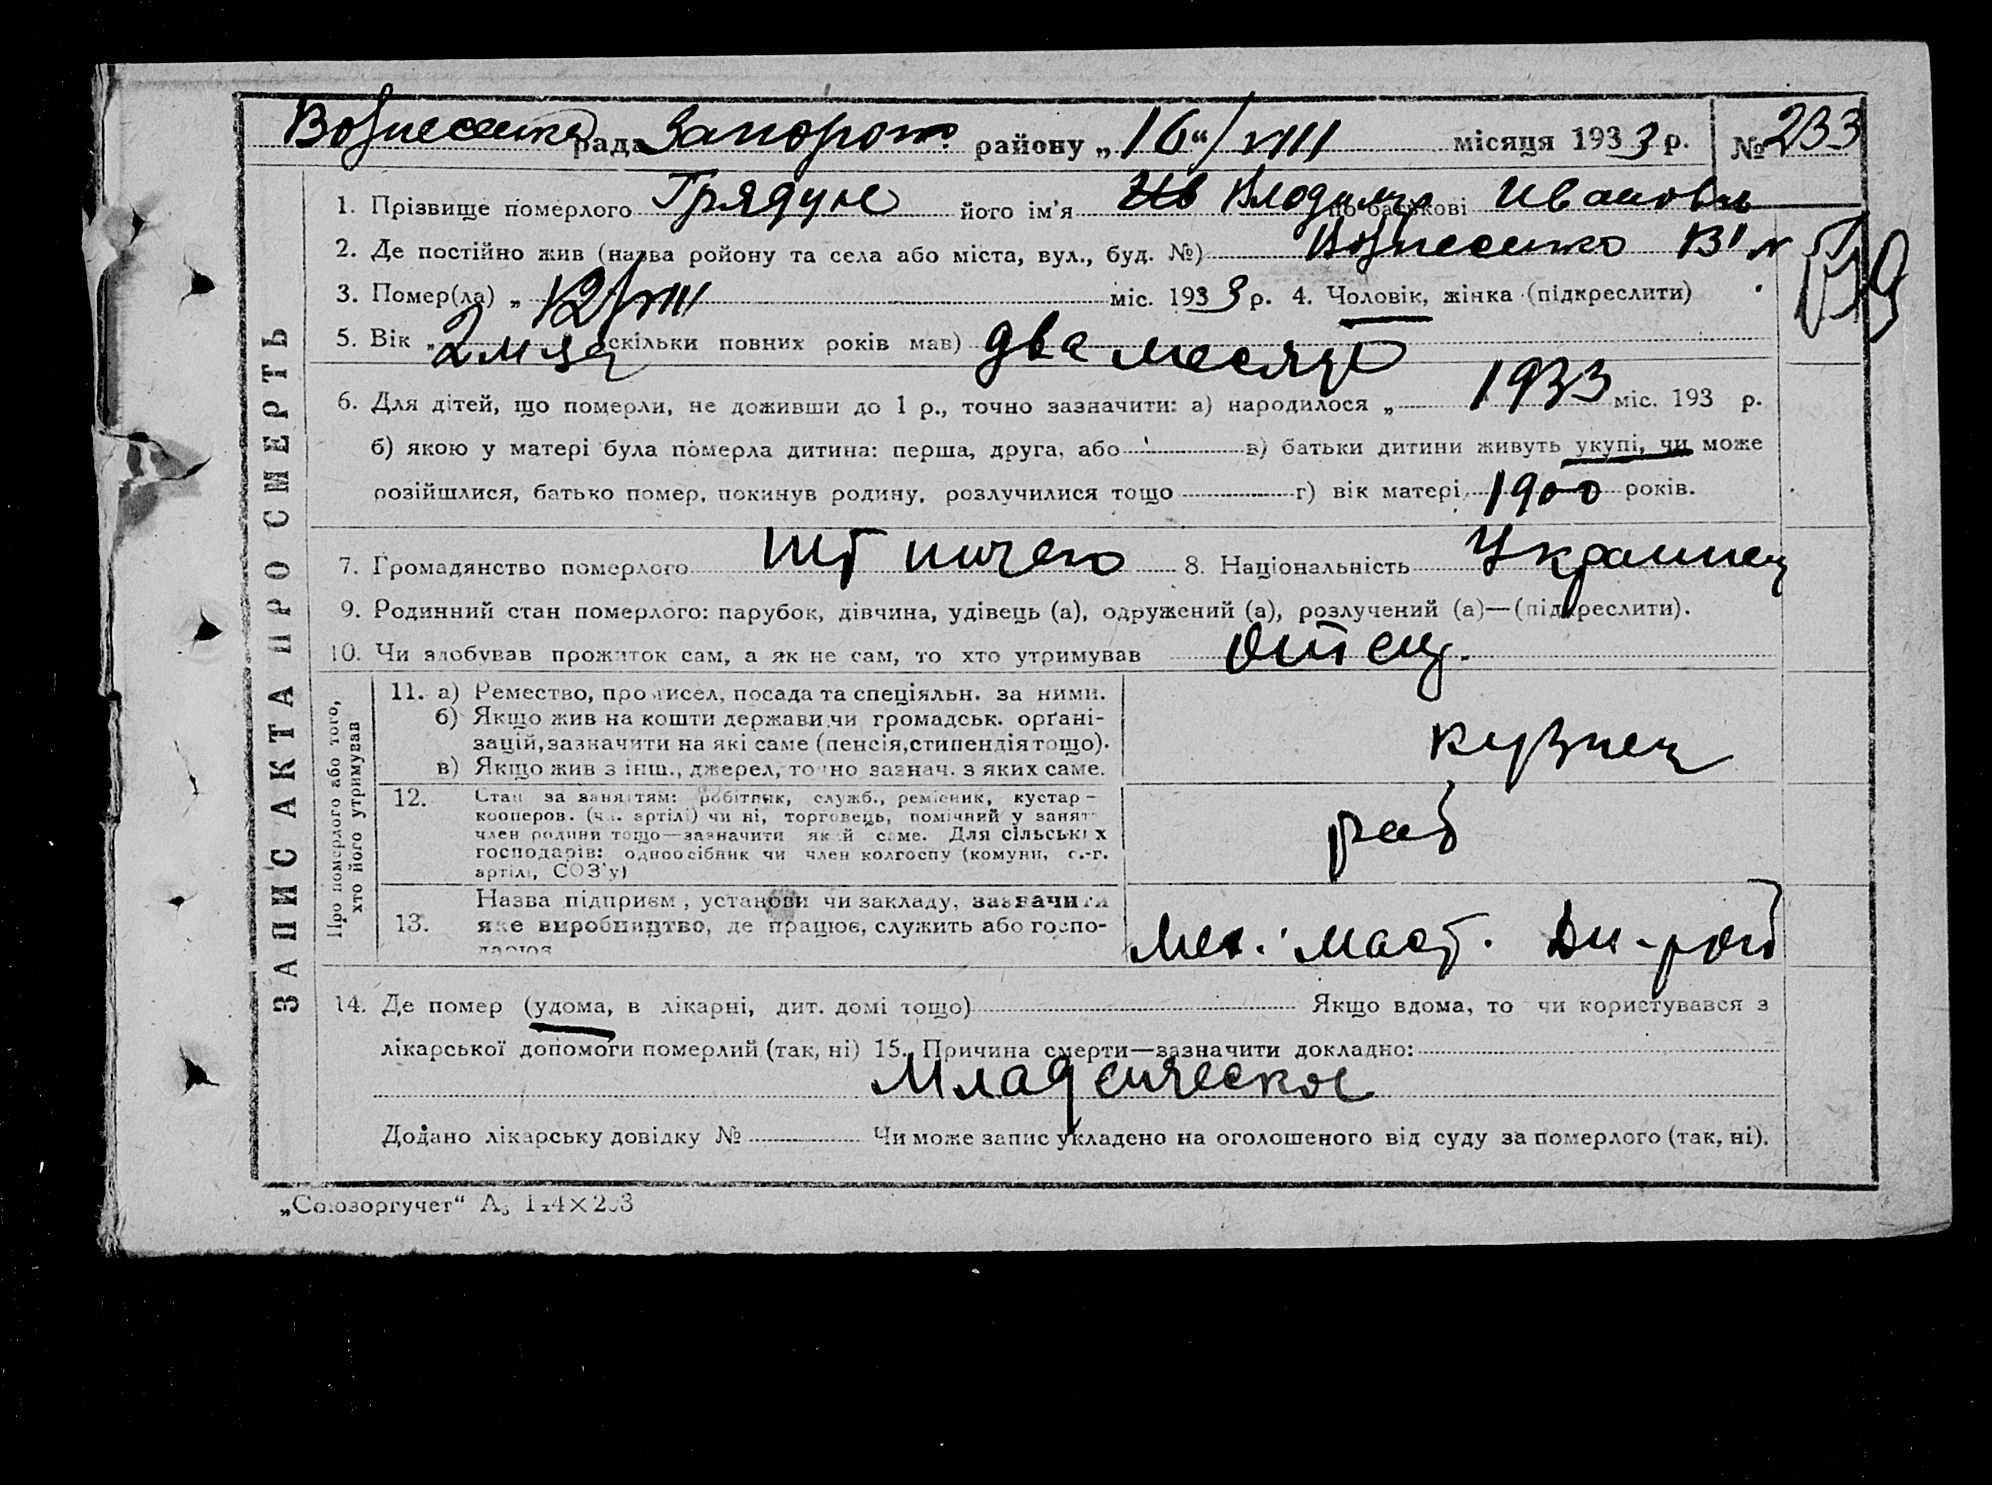 Вознесенка рада Запорож. району „16“/VIII місяця 1933 р. № 233
1. Прізвище померлого Грядун його ім'я Ив Владимир по батькові Иванович
2. Де постійно жив (назва ройону та села або міста, вул., буд. №) Вознесенка
3. Помер(ла) „ 12/VIII міс. 1933 р. 4. Чоловік, жінка (підкреслити)
5. Вік „ 2 м-ца скільки повних років мав) два месяца
6. Для дітей, що померли, не доживши до 1 р., точно зазначити: а) народилося „ 1933 міс. 193 р.
б) якою у матері була померла дитина: перша, друга, або в) батьки дитини живуть укупі, чи може
розійшлися, батько помер, покинув родину, розлучилися тощо г) вік матері 1900 років.
7. Громадянство померлого 8. Національність Украинец
9. Родинний стан померлого: парубок, дівчина, удівець (а), одружений (а), розлучений (а)—(підкреслити).
10. Чи здобував прожиток сам, а як не сам, то хто утримував Отец.
ЗАПИС АКТА ПРО СМЕРТЬ
Про померлого або того,
хто його утримував
11. а) Ремество, промисел, посада та спеціяльн. за ними.
б) Якщо жив на кошти держави чи громадськ. орґані-
зацій, зазначити на які саме (пенсія, стипендія тощо).
в) Якщо жив з інш., джерел, точно зазнач. з яких саме.
кузнец
12. Стан за заняттям: робітник, служб., ремісник, кустар-
кооперов. (чл. артілі) чи ні, торговець, помічний у занят
член родини тощо—зазначити який саме. Для сільських
господарів: одноосібник чи член колгоспу (комуни, с.-г.
артілі, СОЗ'у)
раб
13. Назва підприєм., установи чи закладу, зазначити
яке виробництво, де працює, служить або госпо-
дарює
Мех. маст.
14. Де помер (удома, в лікарні, дит. домі тощо) Якщо вдома, то чи користувався з
лікарської допомоги померлий (так, ні) 15. Причина смерти—зазначити докладно:
Младенческое
Додано лікарську довідку № Чи може запис укладено на оголошеного від суду за померлого (так, ні).
„Союзоргучет“